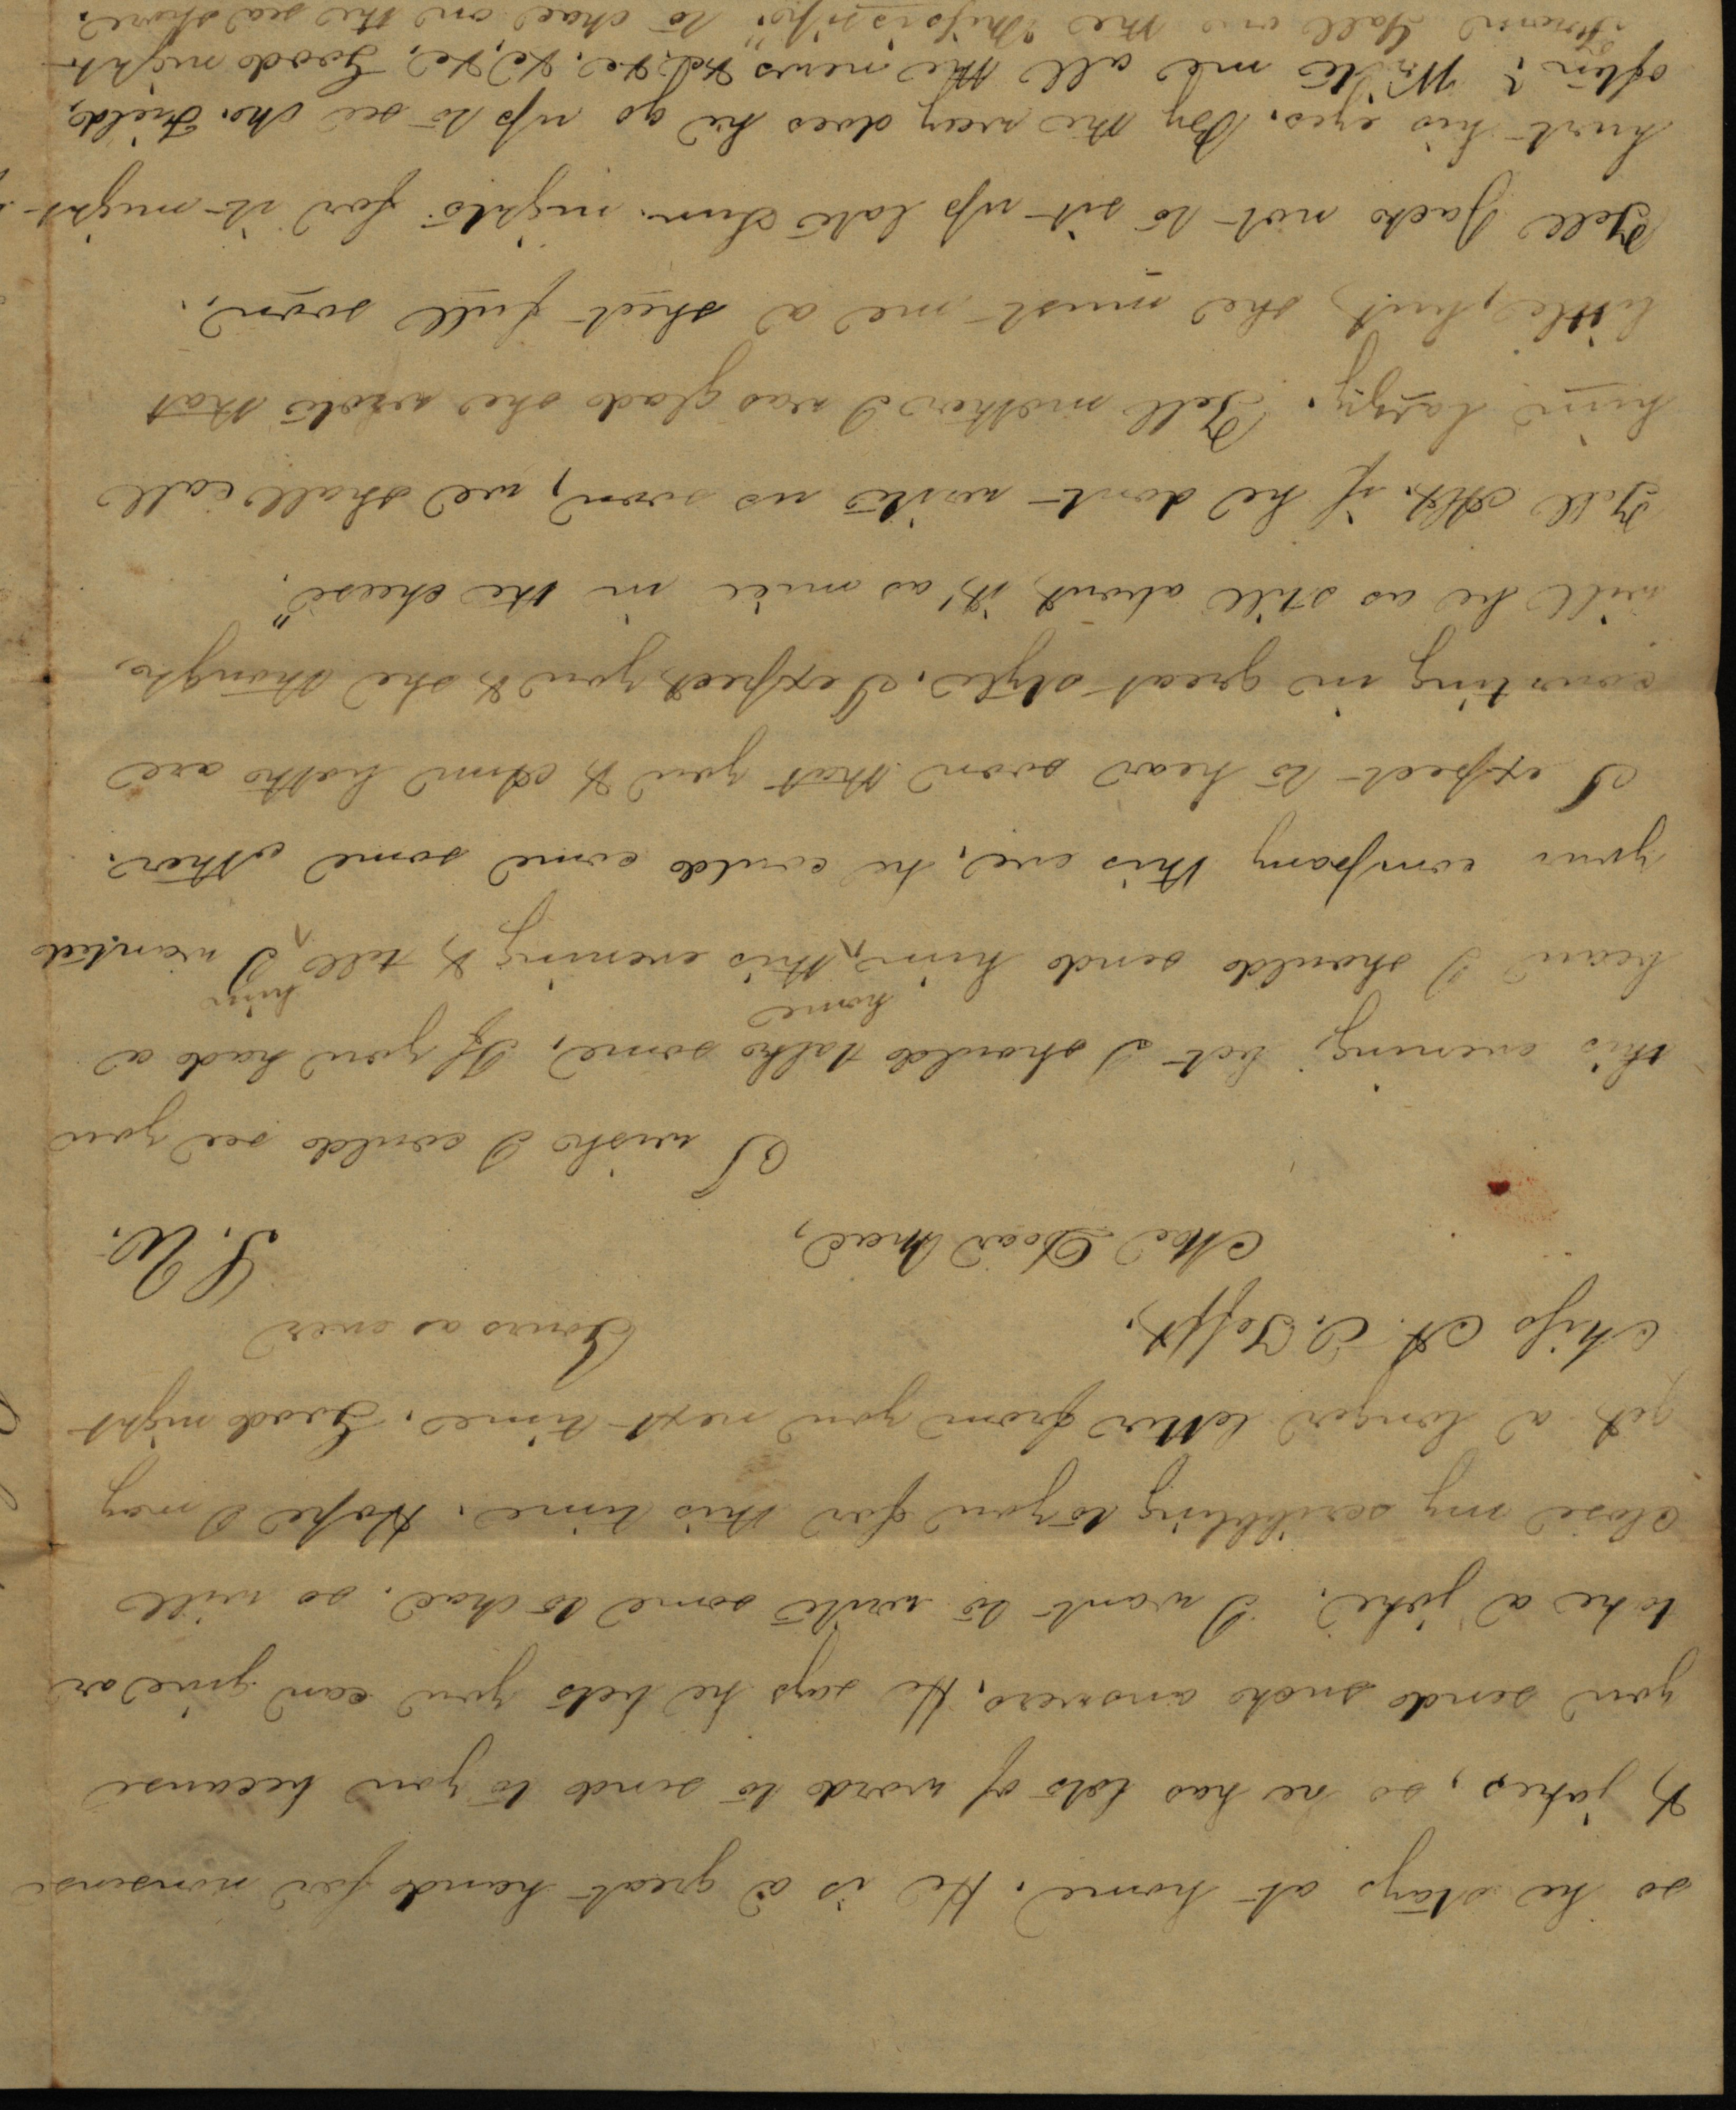 so he stays at home. He is a great hand for nonsense
& jokes, so he has lots of words to send to you because
you send such answers. He says he bets you can give or
take a joke. I want to write some to Chae. so will
close my scribbling to you for this time. Hope I may
get a longer letter from you next time. Good night
Yours as ever
Miss A. E. Tefft,
S. W.
Dear
I wish I could see you
this evening, bet I should talk some, If you had a
beau I should send him home this evening & tell him I wanted
your company this eve, he could come some other.
I expect to hear soon that you & Ann both are
courting in great style. I expect you & she though
will be as still about it, "as mice in the cheese".
Tell if he dont write us soon, we shall call
him lazy. Tell mother I was glad she wrote that
little, but she must me a sheet full soon.
Tell Jack not to sit up late Sun. nights for it might
hurt his eyes. By the way does he go up to see Field,
often? Write me all the news &c, &c. &c, &c, Good night
From Sall on the "Missisippi" to Chae on the sea shore.